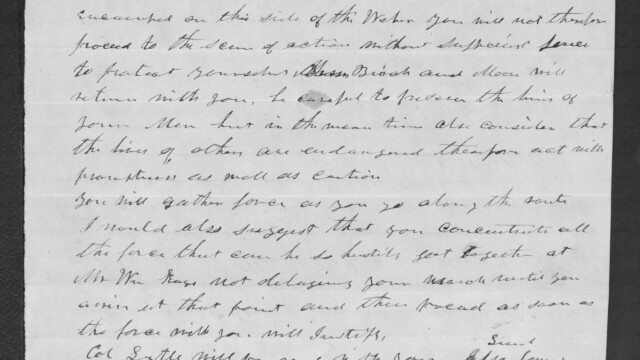 encamped on this side of the Weber you will not therefore
proceed to the scene of action without sufficient force
to protect yourselves and Moon will
return with you, be careful to preserve the lives of
your Men but in the mean time also consider that
the lives of others are endangered therefore act with
promptness as well as caution
You will gather force as you go along the route
I would also suggest that you concentrate all
the force that can be so hastily got together at
Mr Wm Kays not delaying your march until you
arrive at that point and then proceed as soon as
the force with you will Justify,
Col Little will